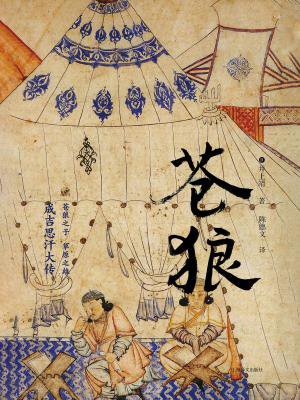 苍狼
[日] 井上靖 著
陈德文 译
苍狼之子 草原之雄
成吉思汗大传
上海译文出版社